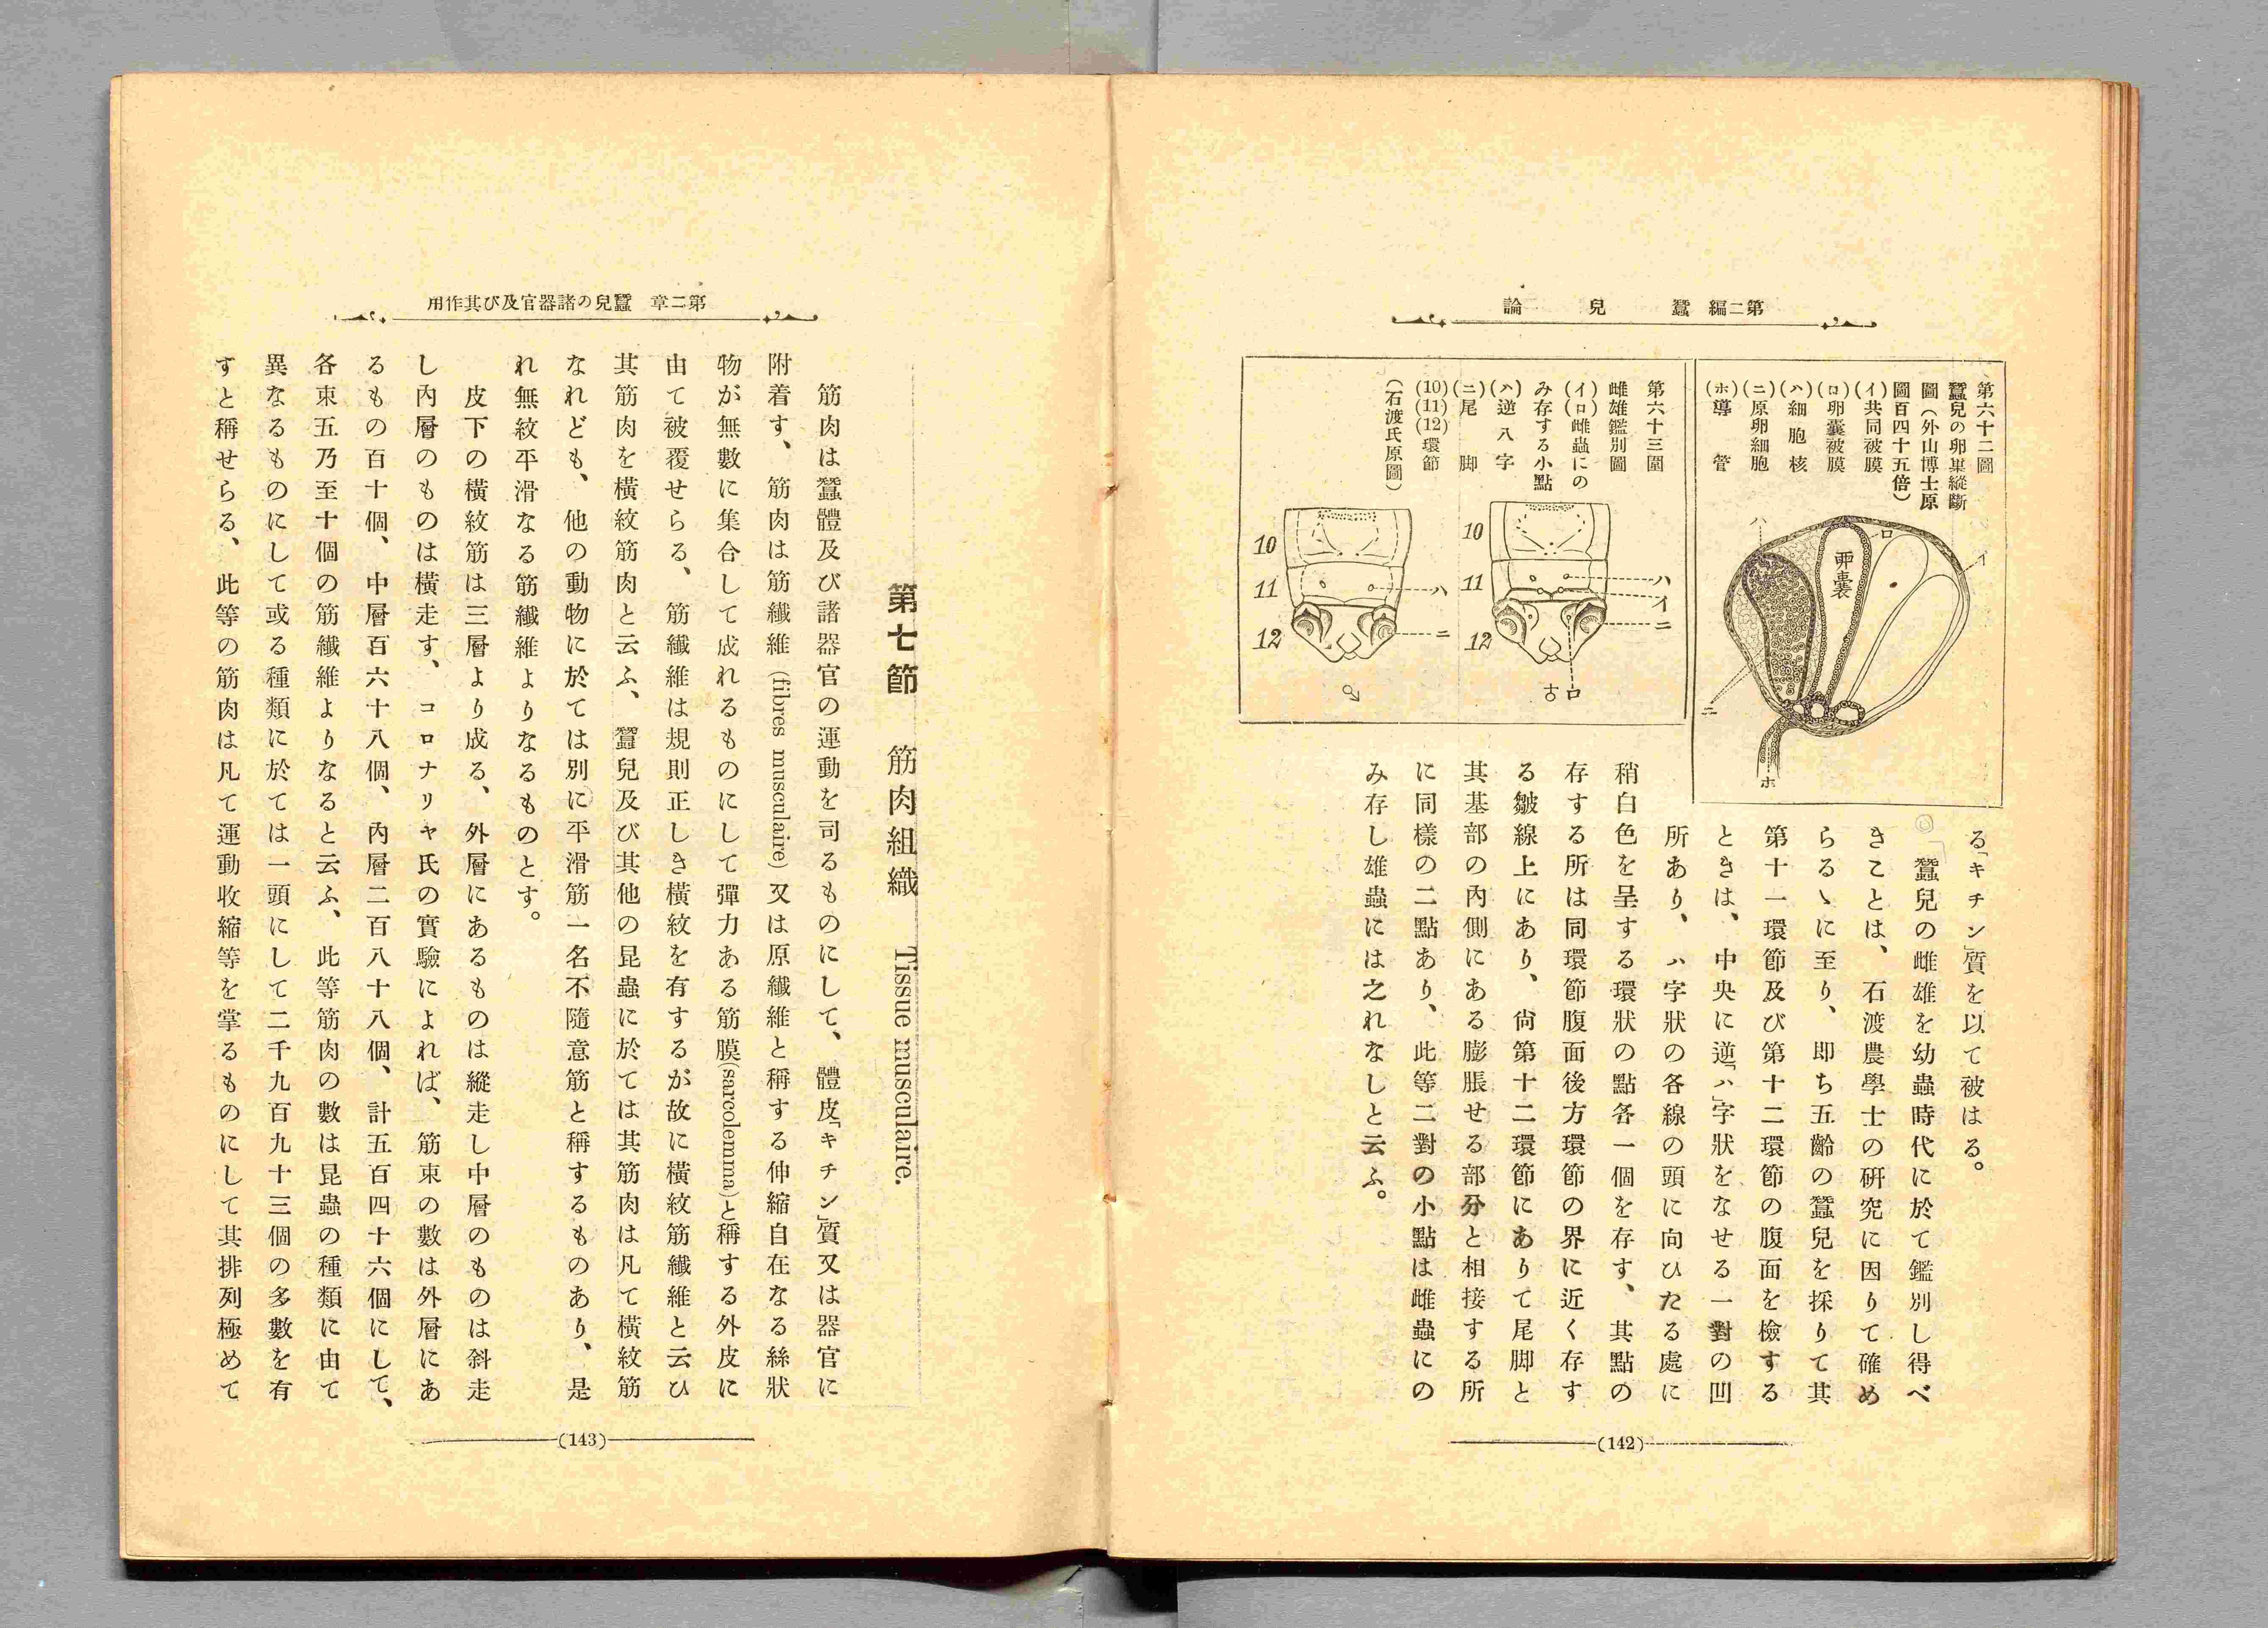 第二編 蠶兒論
第六十二圖
蠶兒の卵巢縱斷
圖(外山博士原
圖百四十五倍)
(イ)共同被膜
(ロ)卵囊被膜
(ハ)細胞核
(ニ)原卵細胞
(ホ)導管
ハ
ロ
イ
卵囊
ニ
ホ
第六十三圖
雌雄鑑別圖
(イ)(ロ)雌蟲にの
み存する小點
(ハ)逆八字
(ニ)尾脚
(10)(11)(12)環節
(石渡氏原圖)
10
11
12
ハ
イ
ニ
ロ
♀
10
11
12
ハ
ニ
♂
る「キチン」質を以て被はる。
蠶兒の雌雄を幼蟲時代に於て鑑別し得べ
きことは、石渡農學士の硏究に因りて確め
らるゝに至り、卽ち五齡の蠶兒を採りて其
第十一環節及び第十二環節の腹面を檢する
ときは、中央に逆「ハ」字狀をなせる一對の凹
所あり、ハ字狀の各線の頭に向ひたる處に
稍白色を呈する環狀の點各一個を存す、其點の
存する所は同環節腹面後方環節の界に近く存す
る皺線上にあり、尙第十二環節にありて尾脚と
其基部の內側にある膨脹せる部分と相接する所
に同樣の二點あり、此等二對の小點は雌蟲にの
み存し雄蟲には之れなしと云ふ。
(142)
第二章 蠶兒の諸器官及び其作用
第七節 筋肉組織 Tissue musculaire.
筋肉は蠶體及び諸器官の運動を司るものにして、體皮「キチン」質又は器官に
附着す、筋肉は筋纖維(fibres musculaire)又は原纖維と稱する伸縮自在なる絲狀
物が無數に集合して成れるものにして彈力ある筋膜(sarcolemma)と稱する外皮に
由て被覆せらる、筋纖維は規則正しき橫紋を有するが故に橫紋筋纖維と云ひ
其筋肉を橫紋筋肉と云ふ、蠶兒及び其他の昆蟲に於ては其筋肉は凡て橫紋筋
なれども、他の動物に於ては別に平滑筋一名不隨意筋と稱するものあり、是
れ無紋平滑なる筋纖維よりなるものとす。
皮下の橫紋筋は三層より成る、外層にあるものは縱走し中層のものは斜走
し內層のものは橫走す、コロナリヤ氏の實驗によれば、筋束の數は外層にあ
るもの百十個、中層百六十八個、內層二百八十八個、計五百四十六個にして、
各束五乃至十個の筋纖維よりなると云ふ、此等筋肉の數は昆蟲の種類に由て
異なるものにして或る種類に於ては一頭にして二千九百九十三個の多數を有
すと稱せらる、此等の筋肉は凡て運動收縮等を掌るものにして其排列極めて
(143)